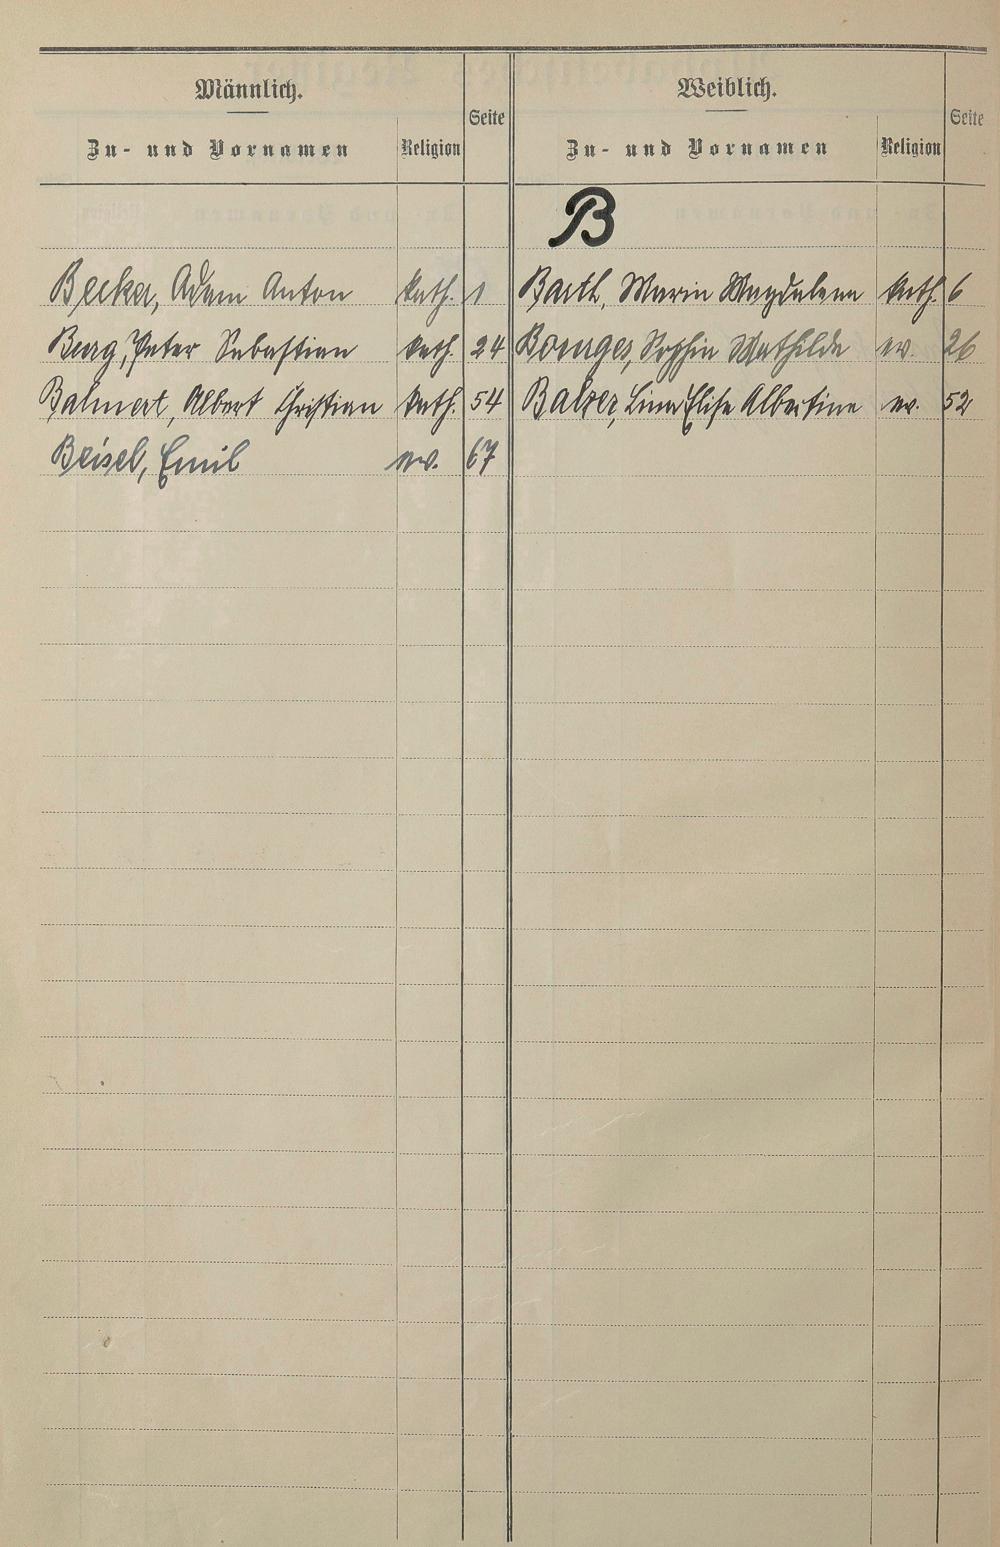 Männlich.
Zu- und Vornamen Religion Seite
Becker, Adam Anton kath. 1
Burg, Peter Sebastian kath. 24
Balmert, Albert Christian kath. 54
Beisel, Emil ev. 67
Weiblich.
Zu- und Vornamen Religion Seite
B
Barth, Maria Magdalena kath. 6
Sophia Mathilde ev. 26
Balzer, Lina Elise Albertine ev. 52